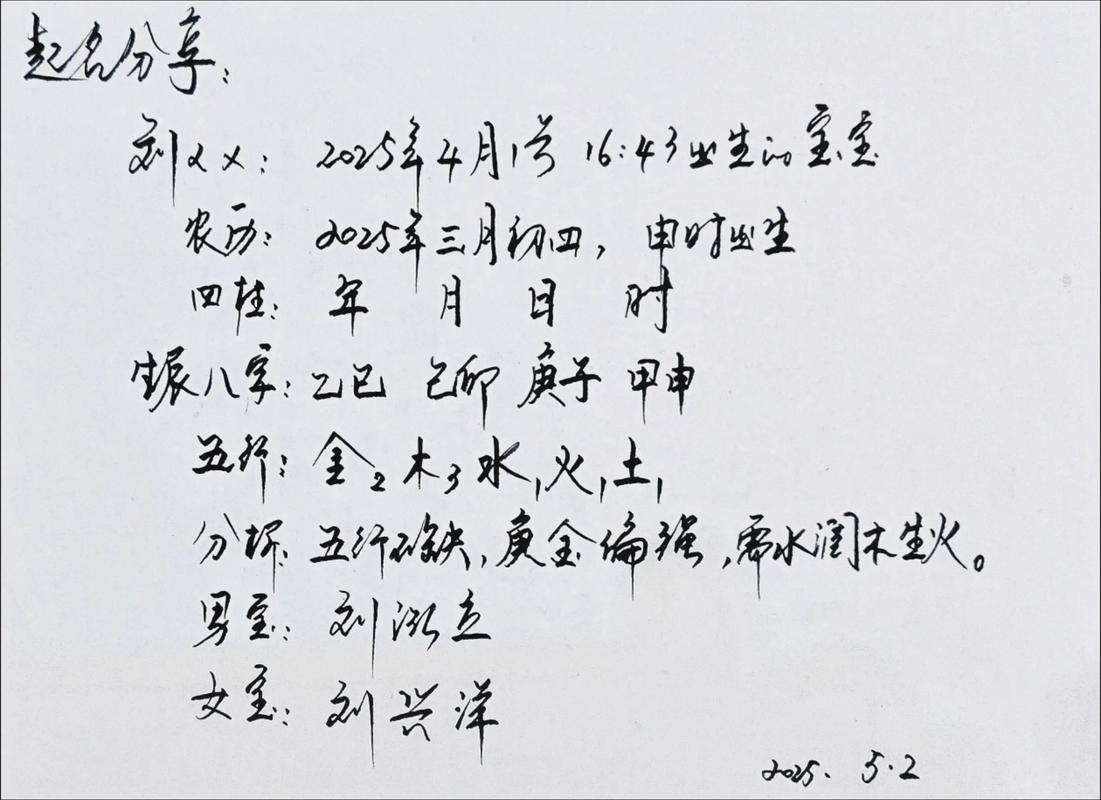 起名分享:
刘××: 2025年4月1号 16:43出生的宝宝
农历: 2025年三月初四, 申时出生
四柱: 年 月 日 时
生辰八字: 乙巳 己卯 庚子 甲申
五行: 金2 木3 水1 火1 土1
分析: 五行不缺, 庚金偏强, 需水润木生火。
男宝: 刘泓立
女宝: 刘兴洋
2025. 5.2